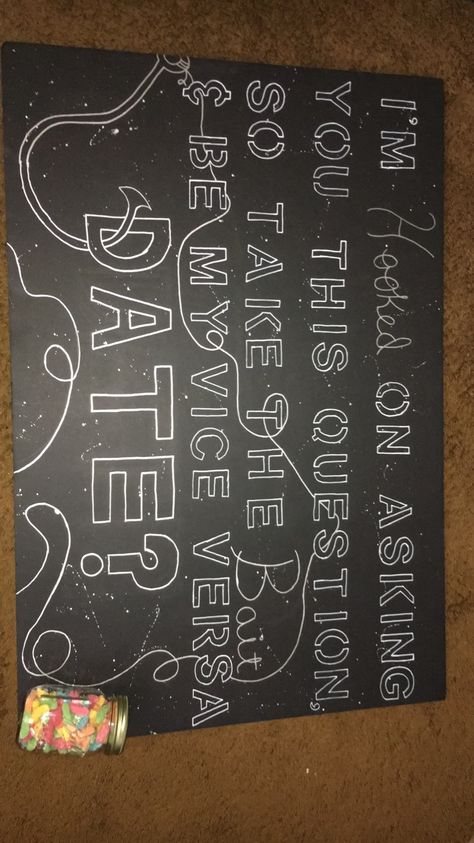 I'M Hooked ON ASKING
YOU THIS QUESTION,
SO TAKE THE Bait
& BE MY VICE VERSA
DATE?